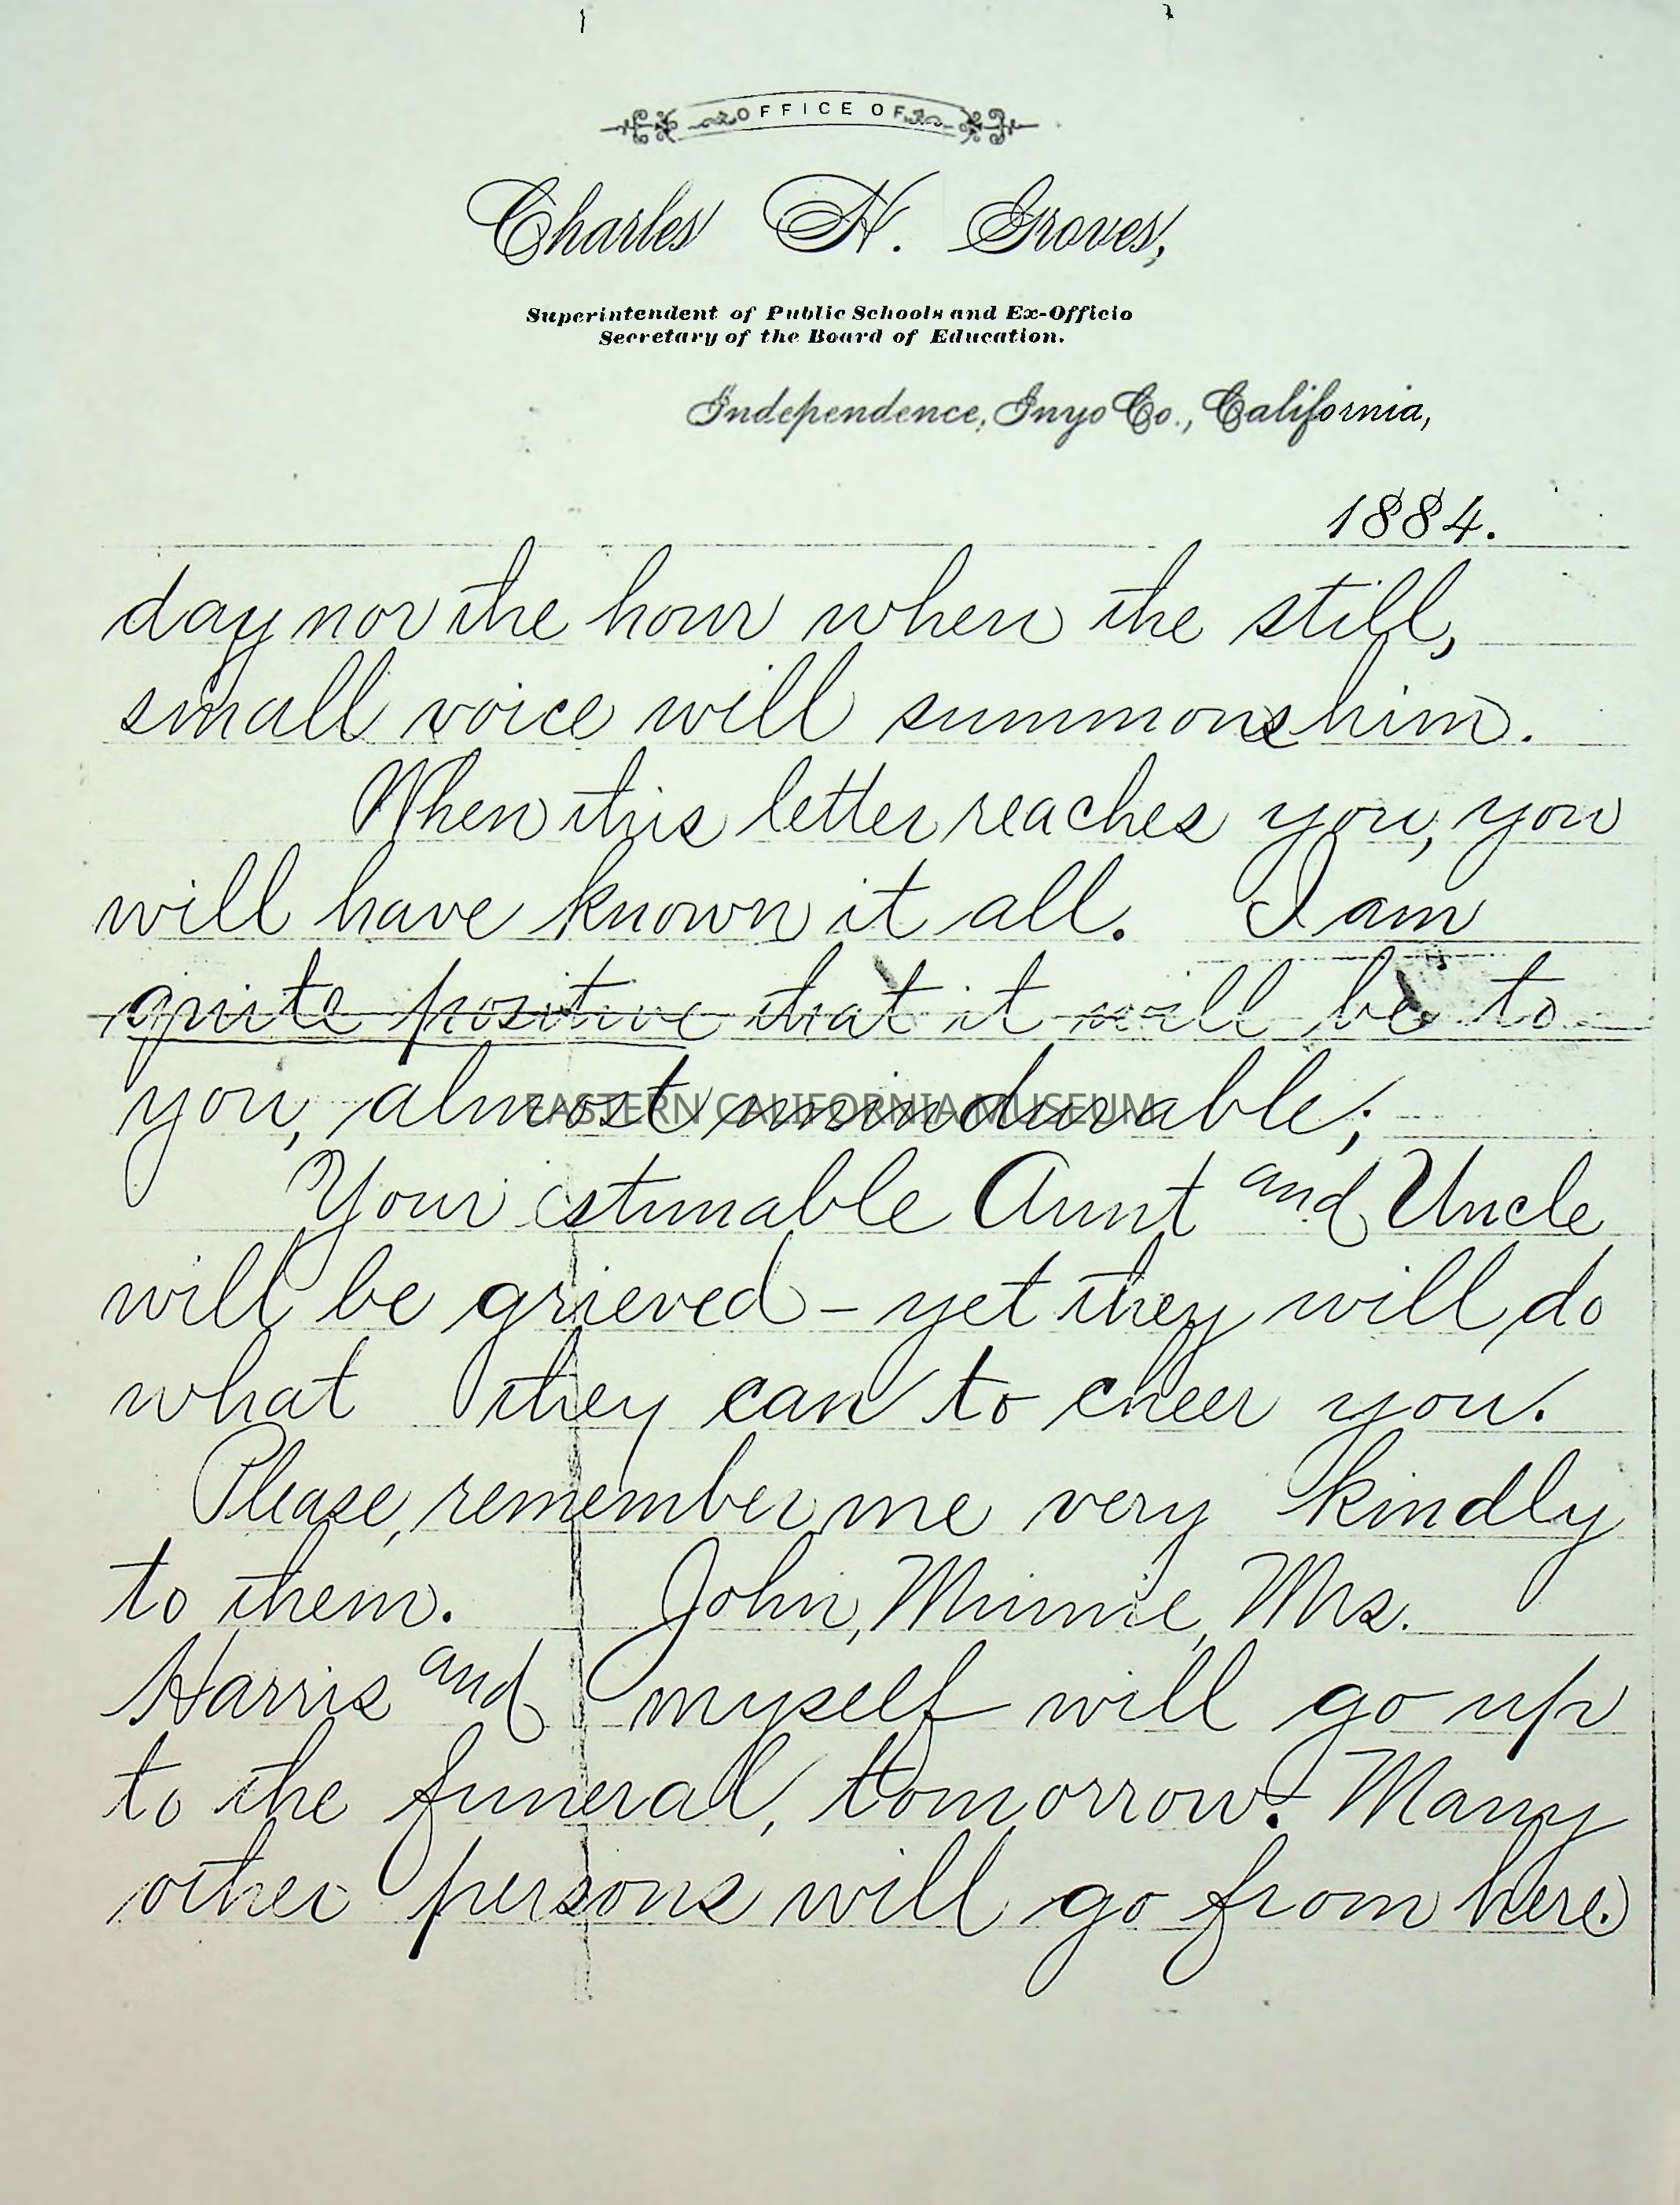 OFFICE OF
Charles H. Groves,
Superintendent of Public Schools and Ex-Officio
Secretary of the Board of Education.
Independence, Inyo Co., California,
1884.
day nor the hour when the still,
small voice will summons him.
When this letter reaches you, you
will have known it all. I am
quite positive that it will be to
you, almost unindurable;
EASTERN CALIFORNIA MUSEUM
Your estimable Aunt and Uncle
will be grieved - yet they will do
what they can to cheer you.
Please, remember me very kindly
to them. John, Minnie, Mrs.
Harris and myself will go up
to the funeral, tomorrow. Many
other persons will go from here.